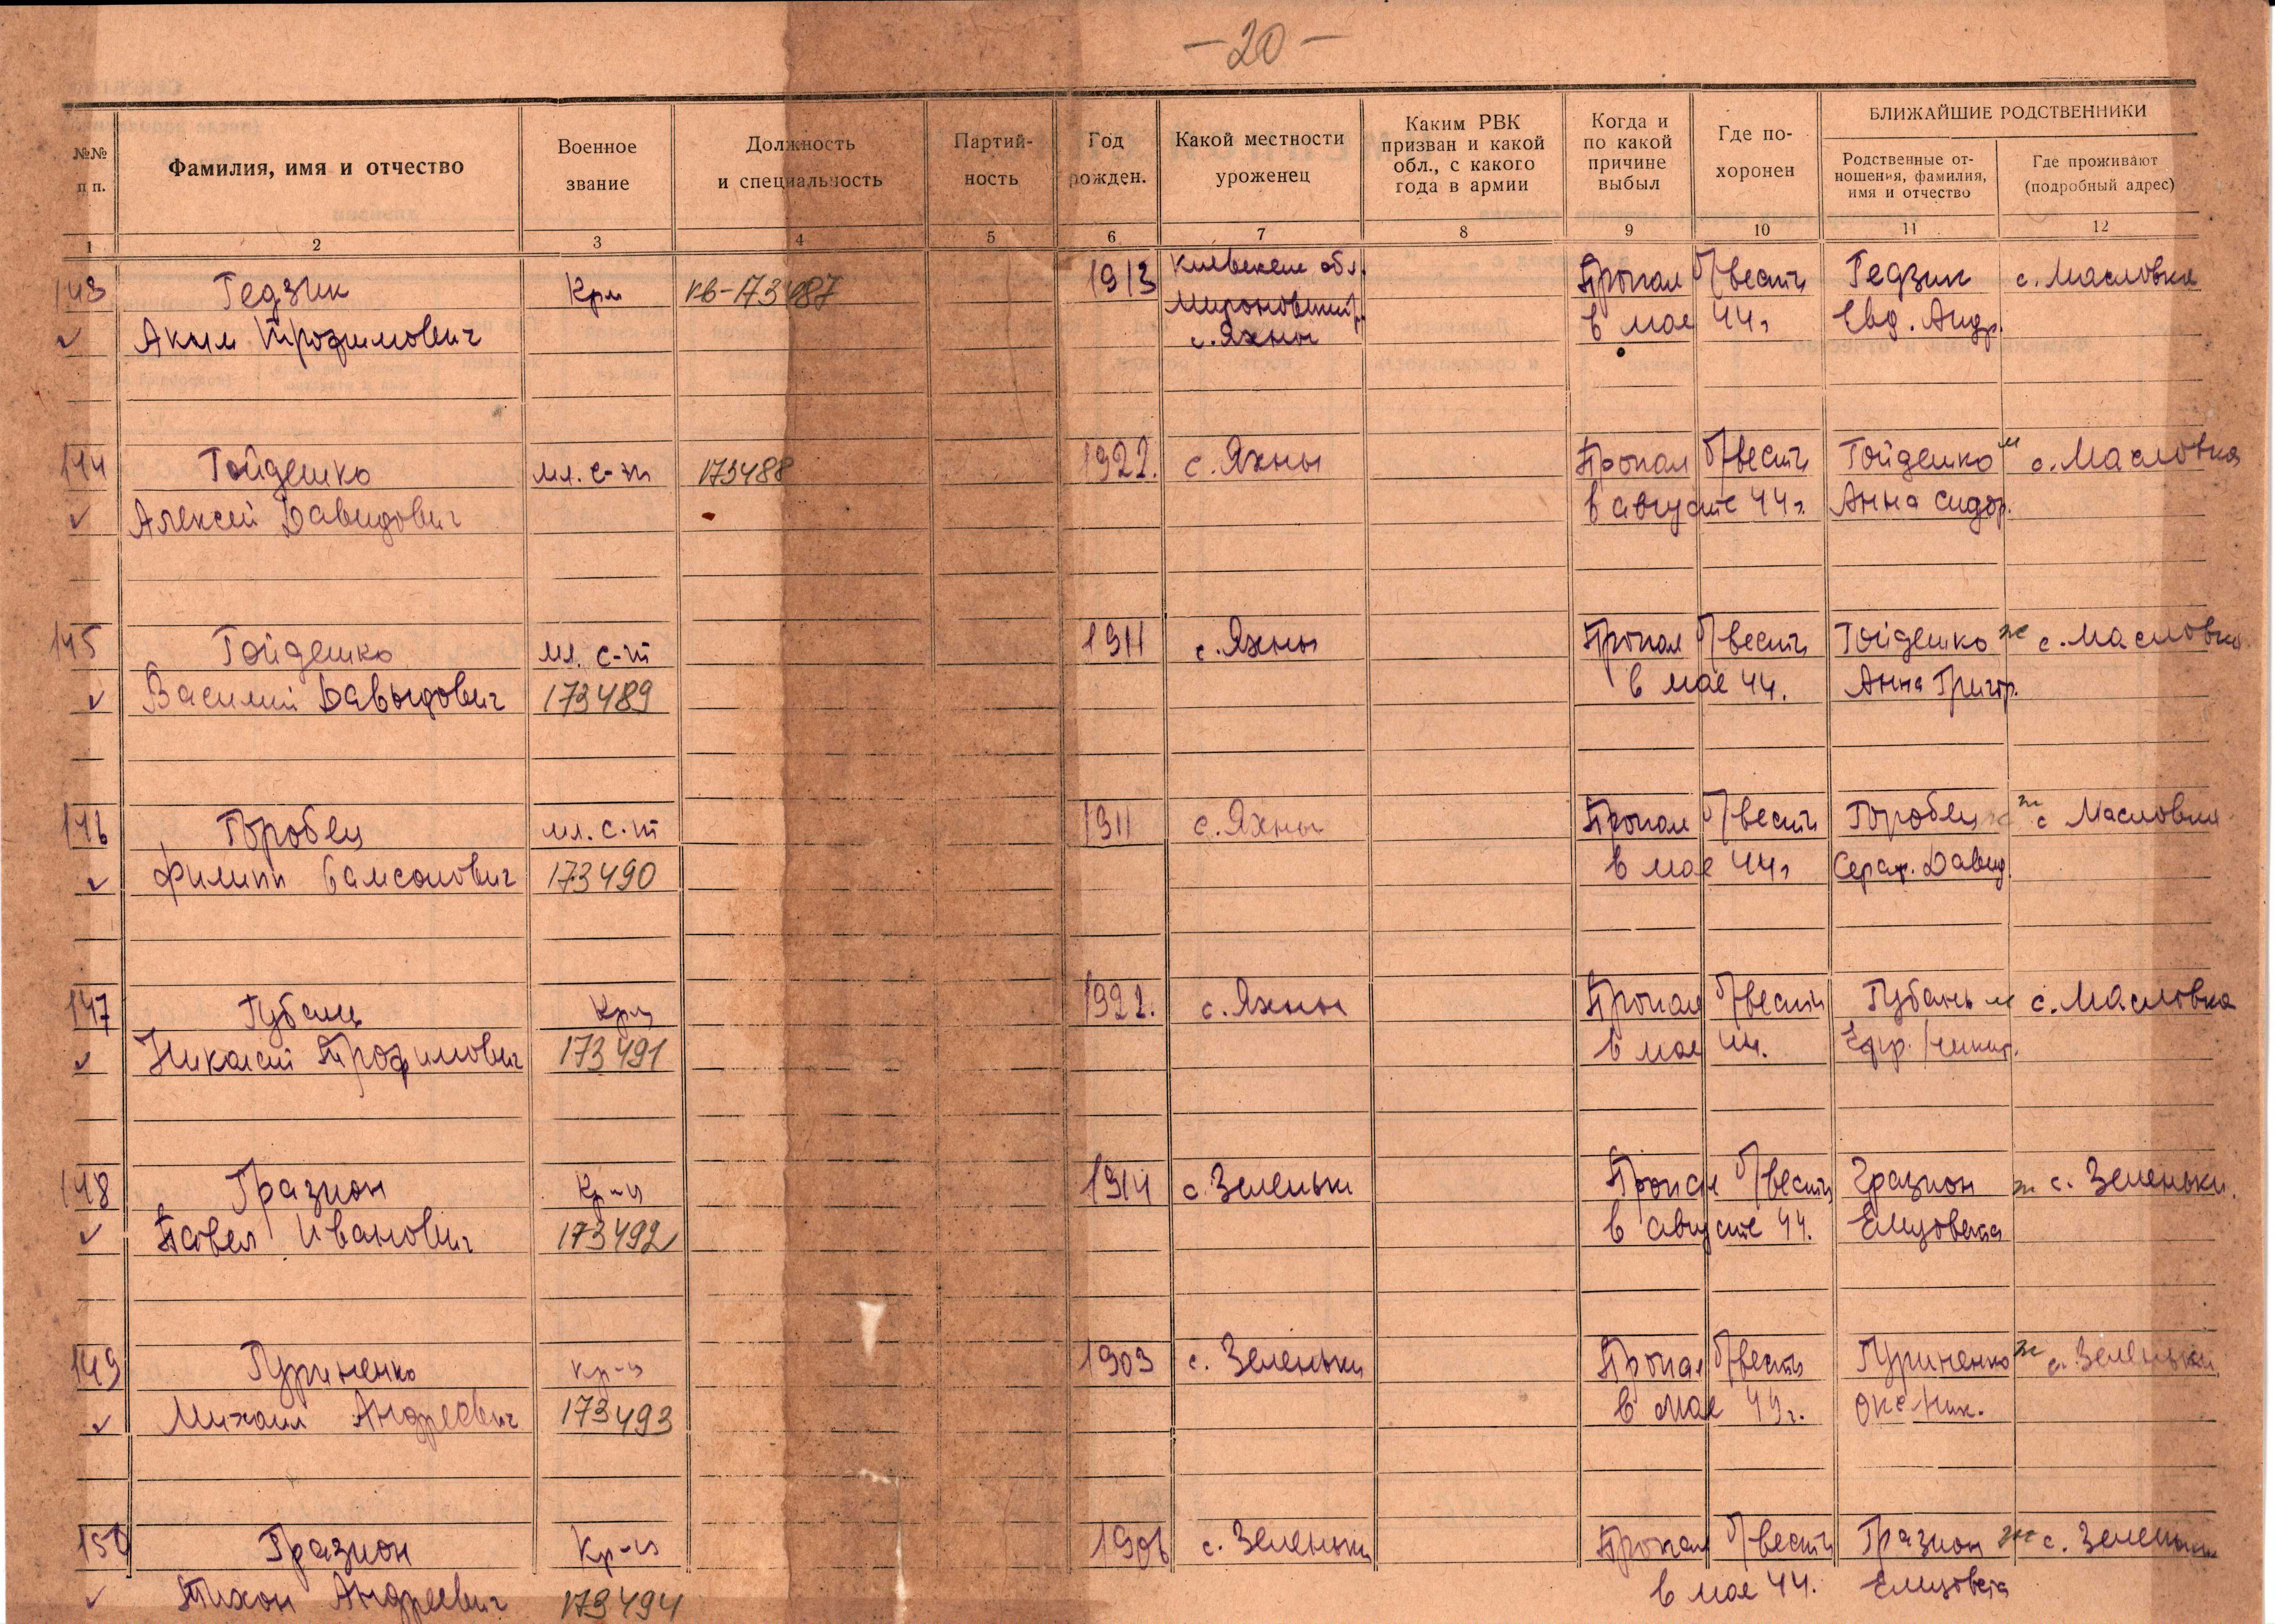 – 20 –
№№ п п.
Фамилия, имя и отчество
Военное звание
Должность и специальность
Партий- ность
Год рожден.
Какой местности уроженец
Каким РВК призван и какой обл., с какого года в армии
Когда и по какой причине выбыл
Где по- хоронен
БЛИЖАЙШИЕ РОДСТВЕННИКИ
Родственные от- ношения, фамилия, имя и отчество
Где проживают (подробный адрес)
1 2 3 4 5 6 7 8 9 10 11 12
143 Гедзик Кр-ц кв-173487 1913 Киевские обл. Пропал б/вести Гедзик с. Масловка
Аким Трофимович Мироновский р. с. Яхны в мае 44г Евд. Андр.
144 Гойденко мл. с-т 173488 1922. с. Яхны Пропал б/вести Гойденко м с. Масловка
Алексей Давидович в августе 44г. Анна Сидор.
145 Гойденко мл. с-т 1911 с. Яхны Пропал б/вести Гойденко ж с. Масловка
Василий Давыдович 173489 в мае 44. Анна Григор.
146 Горобец мл. с-т 1911 с. Яхны Пропал б/вести Горобец ж с Масловка
Филипп Самсонович 173490 в мае 44г Сераф. Давид.
147 Губань Кр-ц 1922. с. Яхны Пропал б/вести Губань м с. Масловка
Николай Трофимович 173491 в мае 44.
148 Гразион Кр-ц 1914 с. Зеленьки Пропал б/вести Гразион ж с. Зеленьки.
Павел Иванович 173492 в августе 44. Елизовета
149 Гуриненко кр-ц 1903 с. Зеленьки Пропал б/вести Гуриненко ж с. Зеленьки
Михаил Андреевич 173493 в мае 44г. Окс Ник.
150 Гразион Кр-ц 1906 с. Зеленьки Пропал б/вести Гразион ж с. Зеленьки
Тихон Андреевич 173494 в мае 44. Елизовета